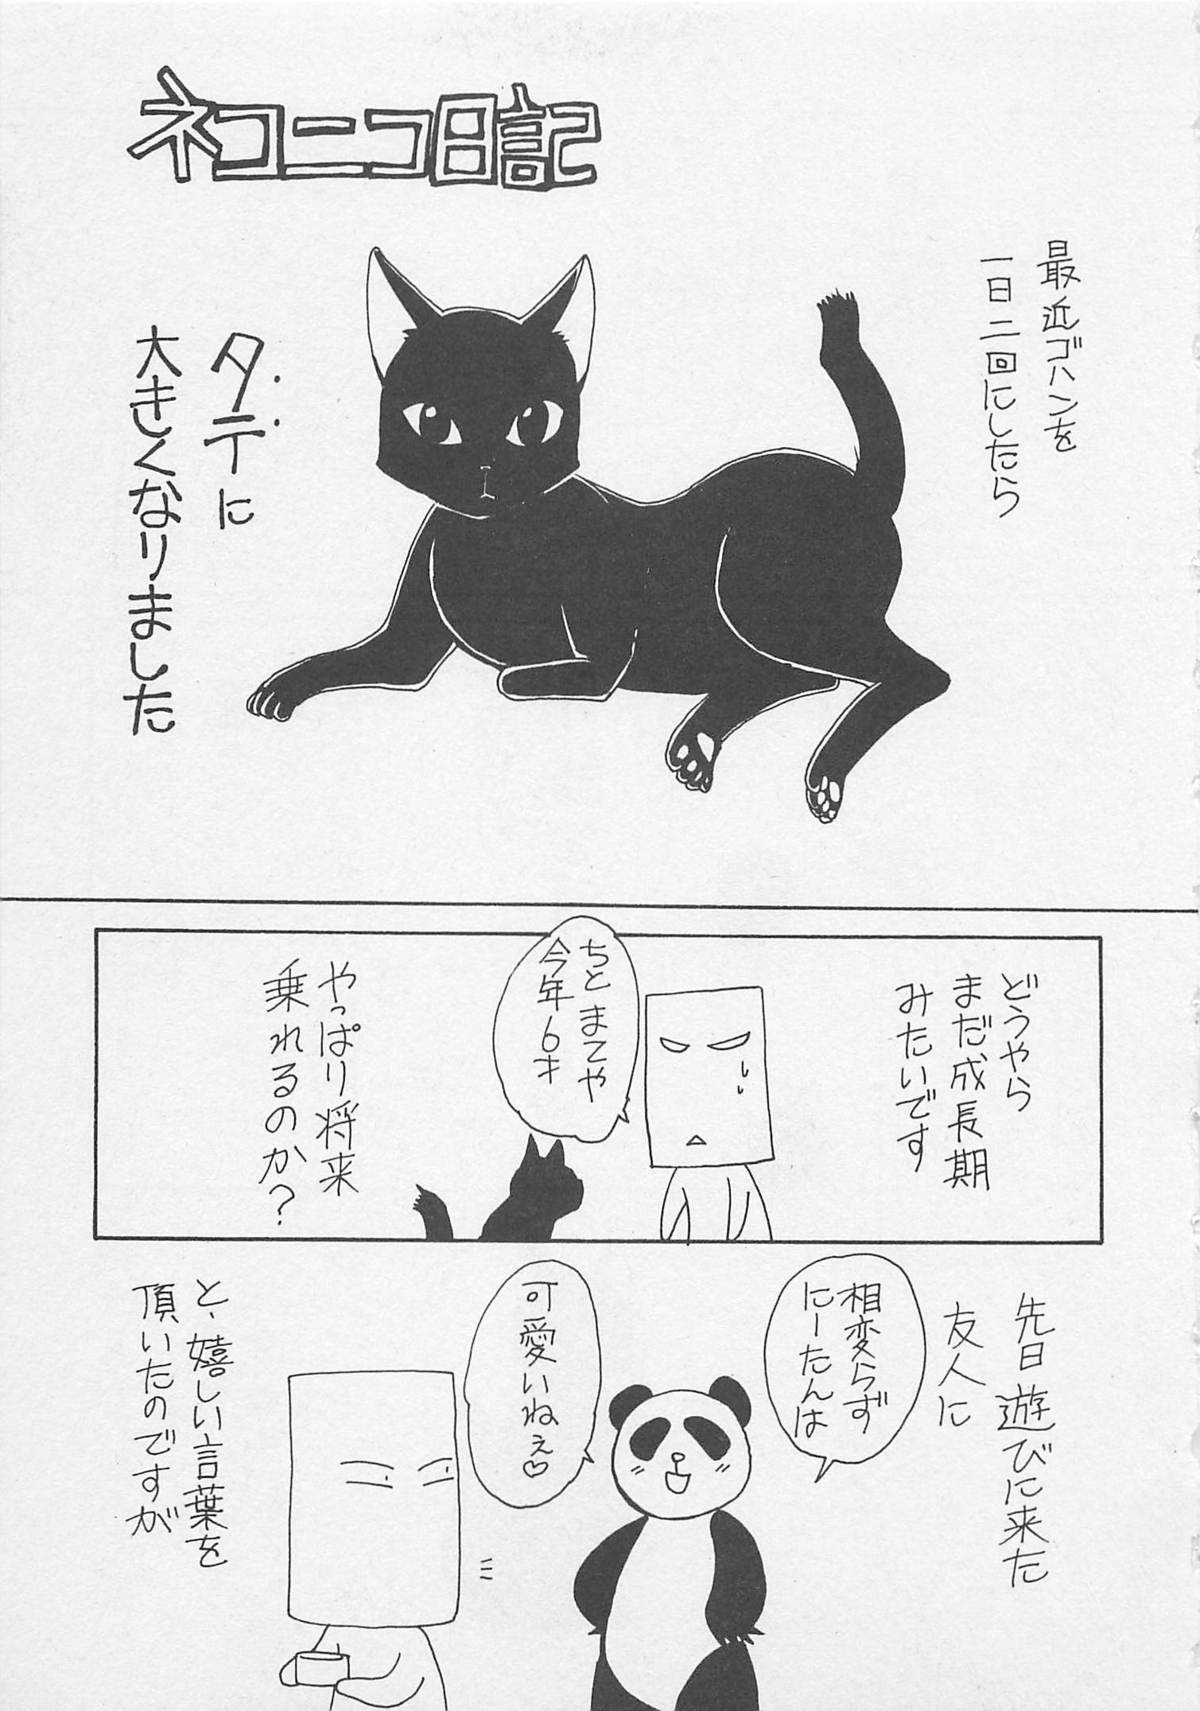 ネコニコ日記
最近ゴハンを
一日二回にしたら
タテに
大きくなりました
どうやら
まだ成長期
みたいです
ちとまてや
今年6才
やっぱり将来
乗れるのか?
先日遊びに来た
友人に
相変らず
にーたんは
可愛いねぇ♡
と、嬉しい言葉を
頂いたのですが